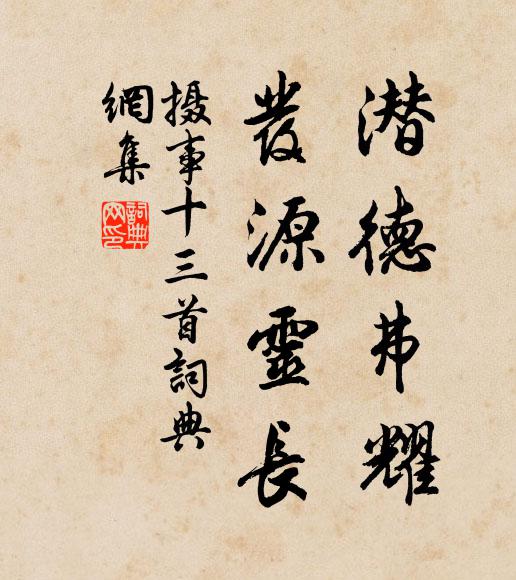 潜德弗耀
發源靈長
摄事十三首詞典
網集
詞典
网印